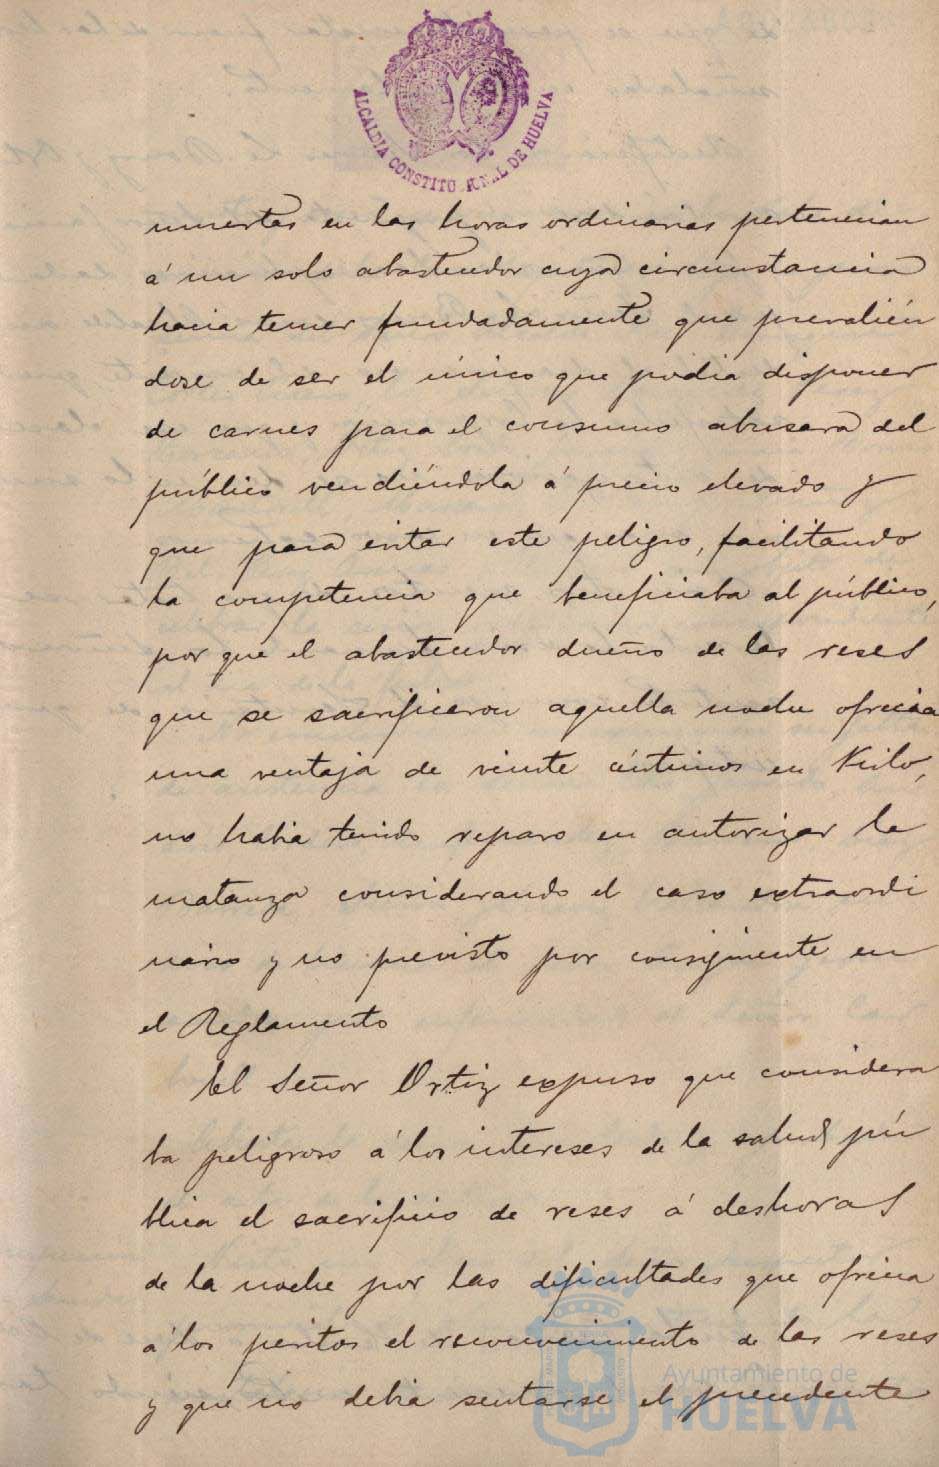 ALCALDIA CONSTITU NAL DE HUELVA
muertas en las horas ordinarias pertenecian
á un solo abastecedor cuya circunstancia
hacia temer fundadamente que prevalién
dose de ser el único que podia disponer
de carnes para el consumo abusara del
público vendiéndola á precio elevado y
que para evitar este peligro, facilitando
la competencia que beneficiaba al público,
por que el abastecedor dueño de las reses
que se sacrificaron aquella noche ofrecia
una ventaja de veinte céntimos en Kilo,
no habia tenido reparo en autorizar la
matanza considerando el caso extraordi
nario y no previsto por consiguiente en
el Reglamento
El Señor Ortiz expuso que considera
ba peligroso á los intereses de la salud pú
blica el sacrificio de reses á deshoras
de la noche por las dificultades que ofrecia
á los peritos el reconocimiento de las reses
y que no debia sentarse el precedente
Ayuntamiento de
HUELVA